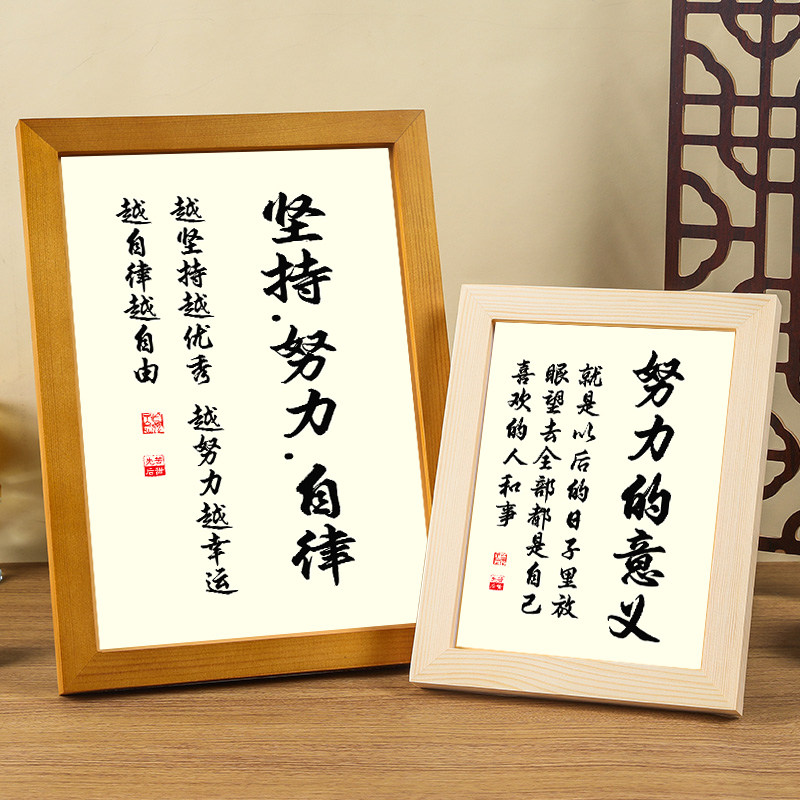 坚持·努力·自律
越坚持越优秀 越努力越幸运
越自律越自由
努力的意义
就是以后的日子里放
眼望去全部都是自己
喜欢的人和事